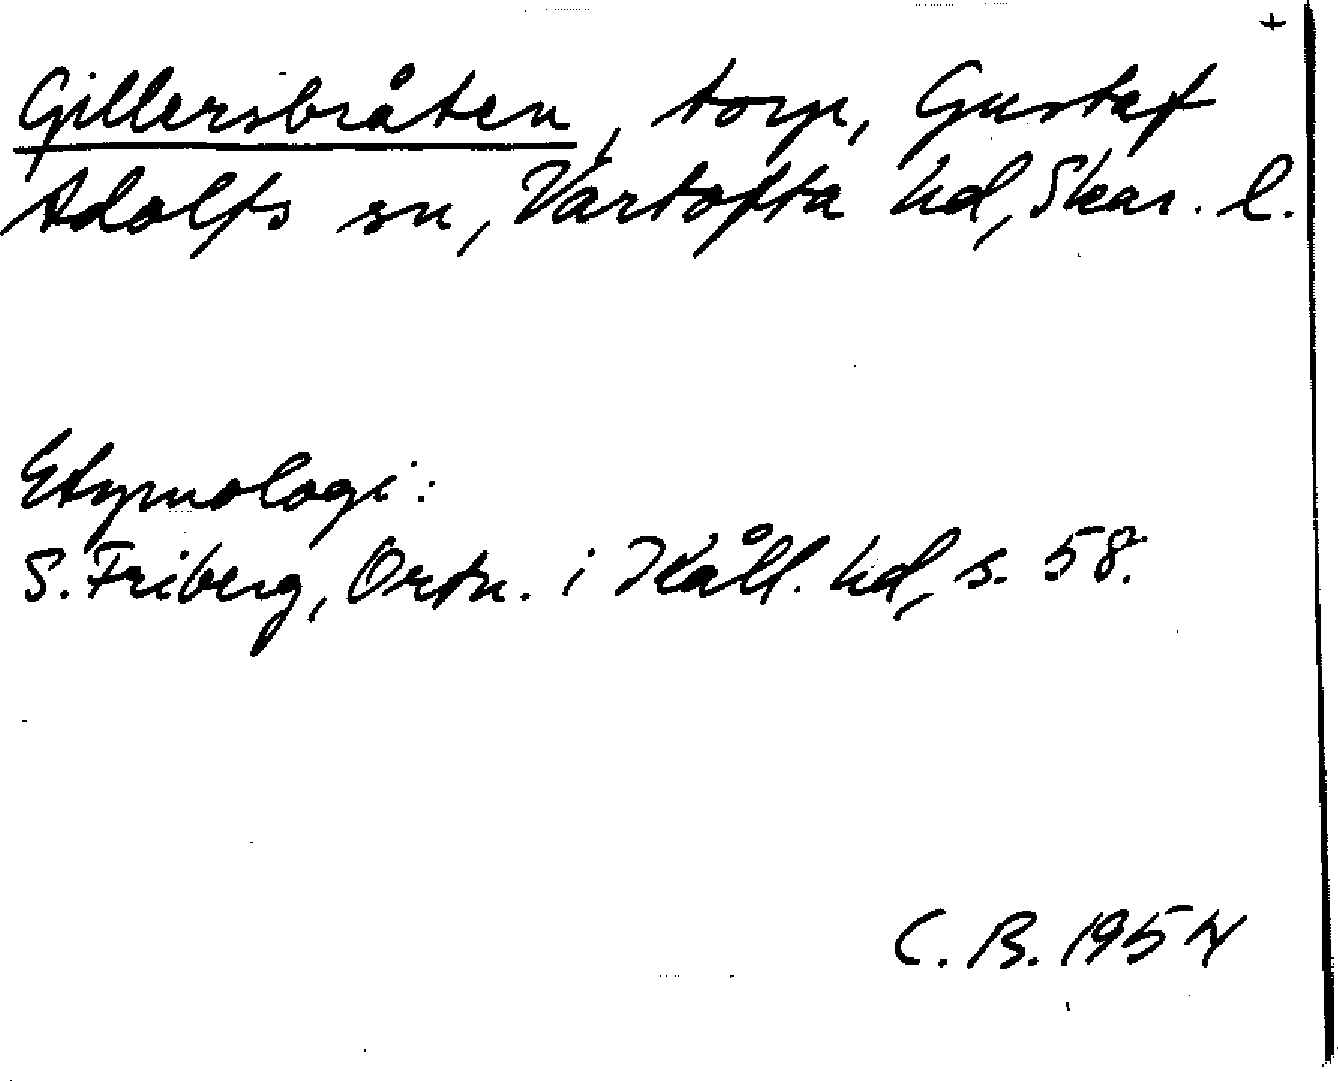 +
Gillersbråten, torp, Gustaf
Adolfs sn, Vartofta hd, Skar. l.
Etymologi:
S. Friberg, Ortn. i Kåll. hd, s. 58.
C. B. 1954